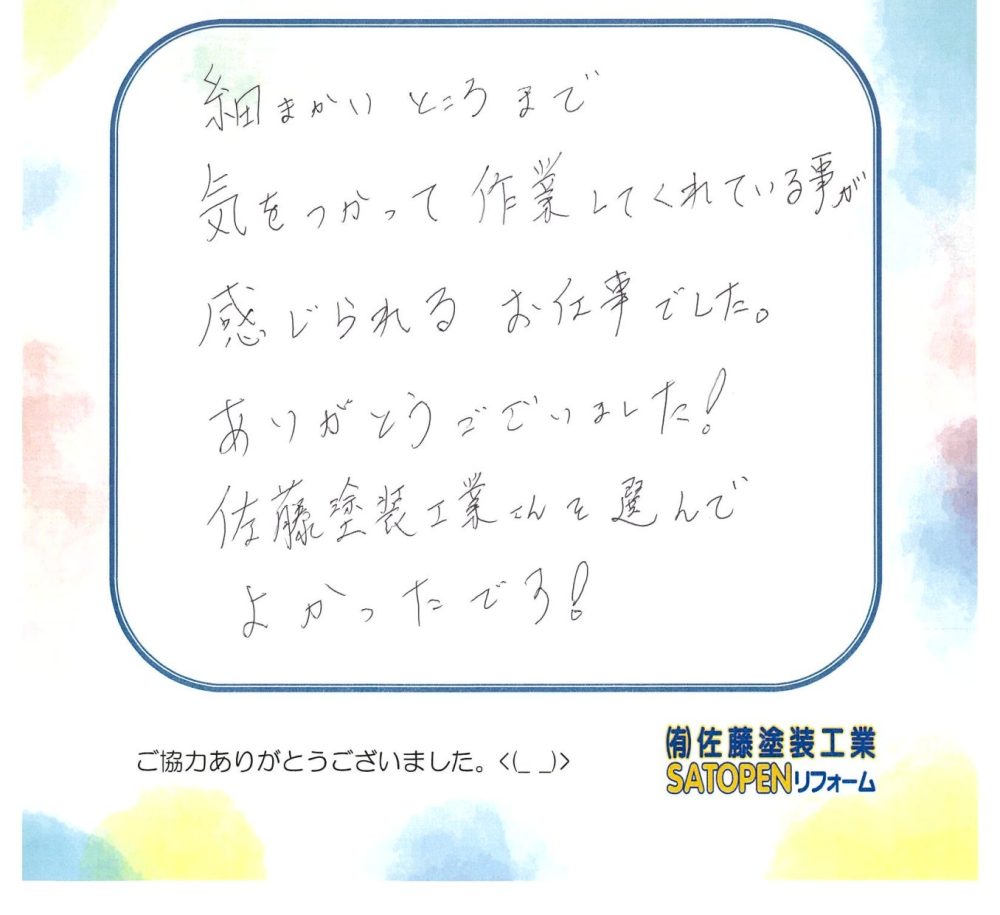 細まかいところまで
気をつかって作業してくれている事が
感じられるお仕事でした。
ありがとうございました!
佐藤塗装工業さんを選んで
よかったです!
ご協力ありがとうございました。<(_ _)>
㈲佐藤塗装工業
SATOPENリフォーム